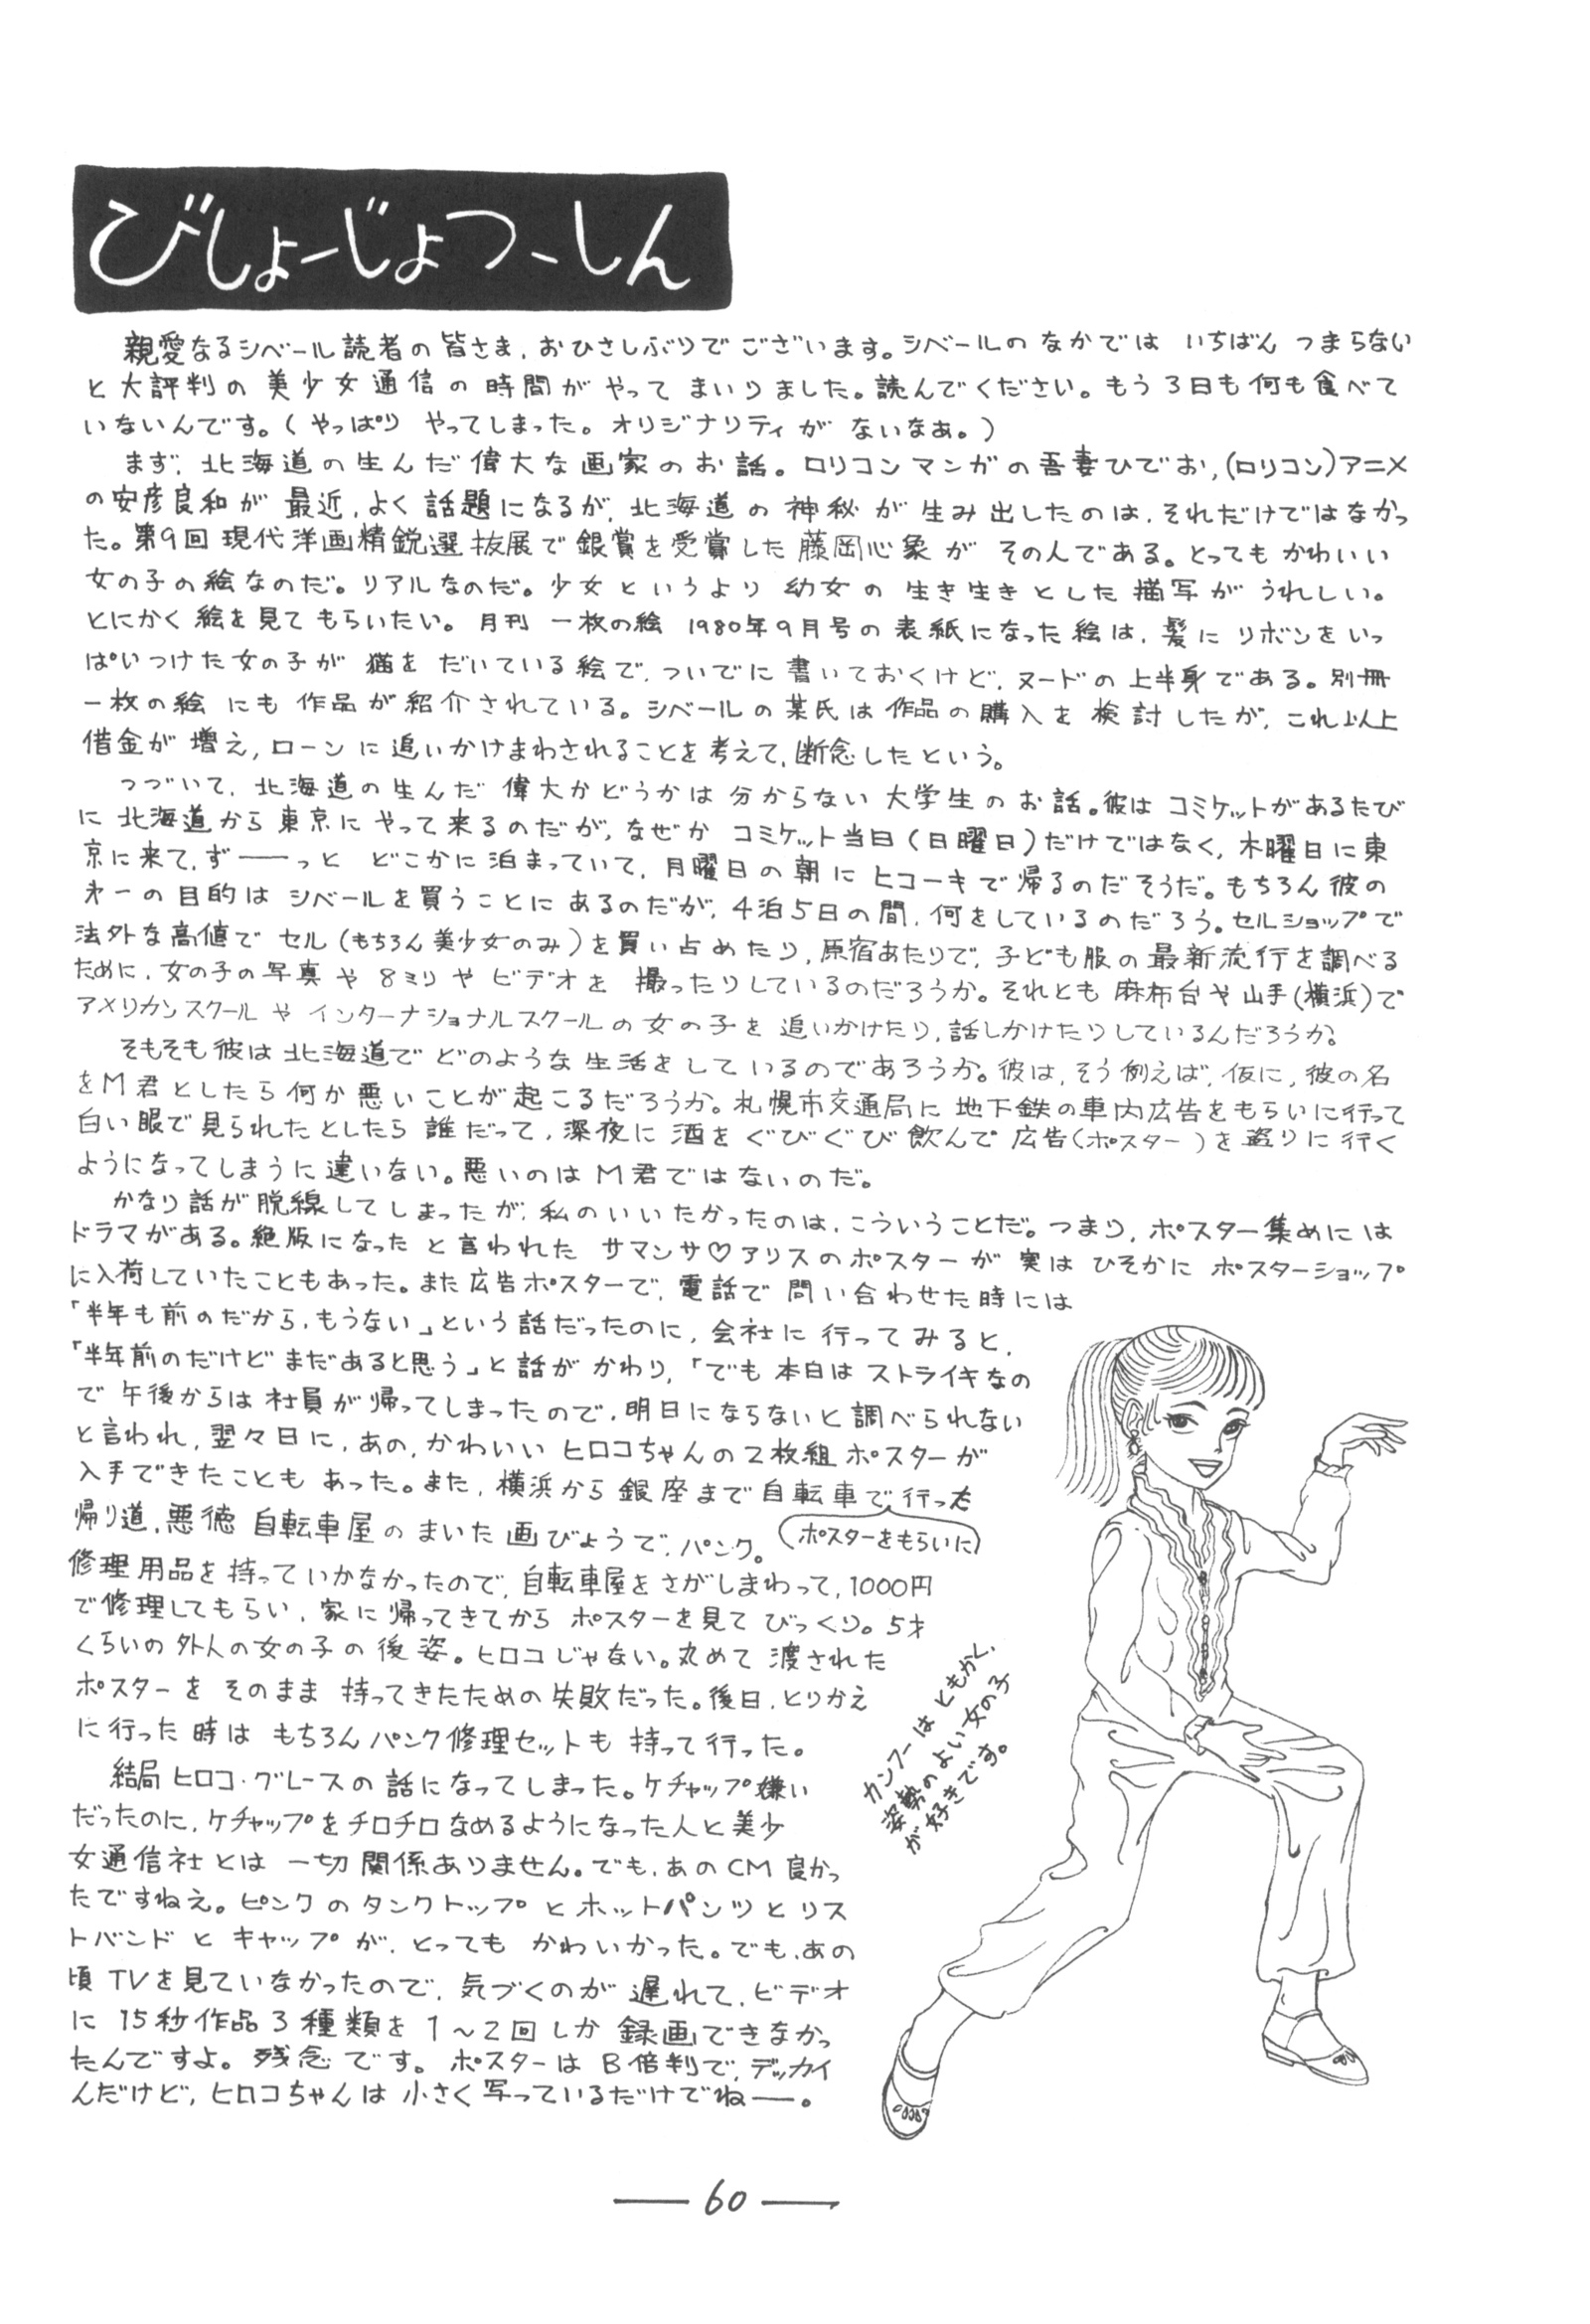 びしょーじょつーしん
親愛なるシベール読者の皆さま、おひさしぶりでございます。シベールのなかでは いちばん つまらない
と大評判の 美少女通信の時間が やって まいりました。読んでください。もう3日も何も食べて
いないんです。(やっぱり やってしまった。オリジナリティが ないなあ。)
まず、北海道の生んだ偉大な画家のお話。ロリコンマンガの吾妻ひでお,(ロリコン)アニメ
の安彦良和が 最近、よく話題になるが、北海道の神秘が生み出したのは、それだけではなかっ
た。第9回現代洋画精鋭選抜展で銀賞を受賞した藤岡心象が その人である。とってもかわいい
女の子の絵なのだ。リアルなのだ。少女というより 幼女の 生き生きとした描写が うれしい。
とにかく絵を見てもらいたい。月刊 一枚の絵 1980年9月号の表紙になった絵は、髪にリボンをいっ
ぱいつけた女の子が 猫を だいている絵で、ついでに書いておくけど、ヌードの上半身である。別冊
一枚の絵 にも 作品が紹介されている。シベールの某氏は作品の購入を検討したが、これ以上
借金が増え, ローンに追いかけまわされることを考えて、断念したという。
つづいて、北海道の生んだ 偉大かどうかは 分からない 大学生のお話。彼は コミケットがあるたび
に 北海道から東京に やって来るのだが、なぜか コミケット当日(日曜日)だけではなく、木曜日に東
京に来て、ず――っと どこかに泊まっていて、月曜日の朝に ヒコーキで帰るのだそうだ。もちろん彼の
才一の目的は シベールを買うことに あるのだが、4泊5日の間、何をしているのだろう。セルショップで
法外な高値で セル(もちろん美少女のみ)を買い占めたり, 原宿あたりで、子ども服の最新流行を調べる
ために、女の子の写真や 8ミリや ビデオを 撮ったりしているのだろうか。それとも 麻布台や山手(横浜)で
アメリカンスクールや インターナショナルスクールの女の子を 追いかけたり, 話しかけたりしているんだろうか。
そもそも彼は北海道で どのような生活をしているのであろうか。彼は、そう例えば、仮に, 彼の名
をM君としたら何か悪いことが起こるだろうか。札幌市交通局に 地下鉄の車内広告をもらいに行って
白い眼で見られたとしたら 誰だって、深夜に 酒をぐびぐび飲んで 広告(ポスター)を盗りに行く
ようになってしまうに違いない。悪いのはM君ではないのだ。
かなり話が脱線してしまったが、私のいいたかったのは、こういうことだ。つまり, ポスター集めには
ドラマがある。絶版になったと言われた サマンサ♡アリスのポスターが 実は ひそかに ポスターショップ
に入荷していたこともあった。また広告ポスターで、電話で問い合わせた時には
「半年も前のだから、もうない」という話だったのに, 会社に行ってみると、
「半年前のだけど まだあると思う」と話が かわり, 「でも 本日は ストライキなの
で 午後からは社員が帰ってしまったので、明日にならないと調べられない
と言われ, 翌々日に、あの、かわいい ヒロコちゃんの2枚組 ポスターが
入手できたことも あった。また、横浜から 銀座まで自転車で行った
帰り道、悪徳 自転車屋の まいた 画びょうで、パンク。(ポスターをもらいに)
修理用品を持っていかなかったので、自転車屋をさがしまわって, 1000円
で修理してもらい、家に帰ってきてから ポスターを見て びっくり。5才
くらいの外人の女の子の後姿。ヒロコじゃない。丸めて 渡された
ポスターを そのまま 持ってきたための失敗だった。後日、とりかえ
に行った時は もちろん パンク修理セットも 持って行った。
結局 ヒロコ・グレースの話になってしまった。ケチャップ嫌い
だったのに、ケチャップをチロチロなめるようになった人と美少
女通信社とは 一切関係ありません。でも、あのCM 良かっ
たですねえ。ピンクのタンクトップとホットパンツとリス
トバンドとキャップが、とっても かわいかった。でも、あの
頃TVを見ていなかったので、気づくのが遅れて、ビデオ
に 15秒作品3種類を 1～2回しか録画できなかっ
たんですよ。残念です。ポスターは B倍判で、デッカイ
んだけど, ヒロコちゃんは 小さく写っているだけでね――。
カンフーはともかく、
姿勢のよい女の子
が好きです。
― 60 ―